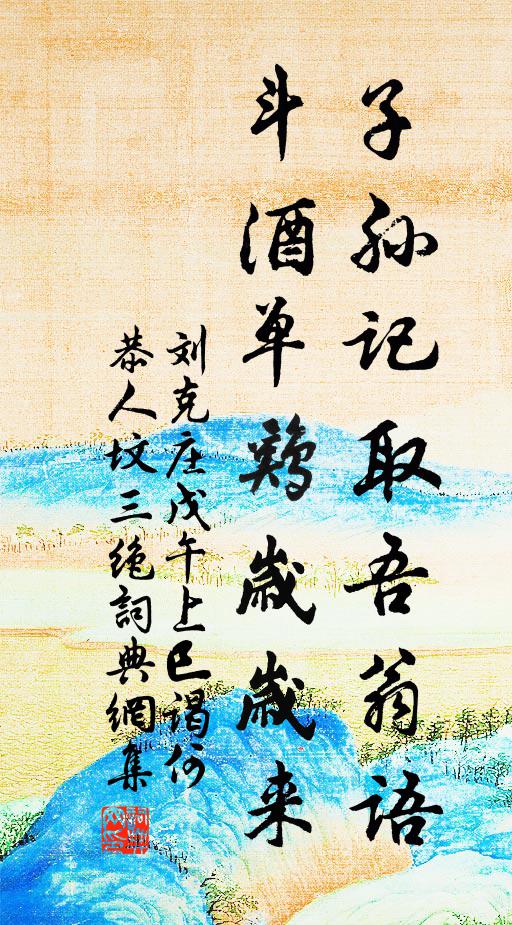 子孙记取吾翁语
斗酒单鸡岁岁来
刘克庄戊午上巳谒何
恭人坟三绝词典網集